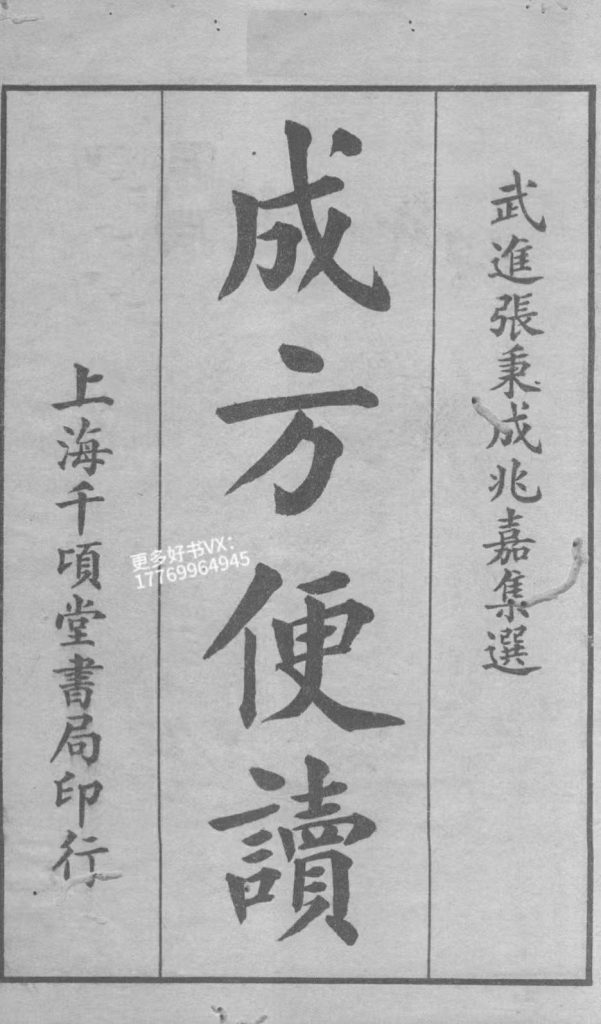 武進張秉成兆嘉集選
成方便讀
上海千頃堂書局印行
更多好书VX：
17769964945